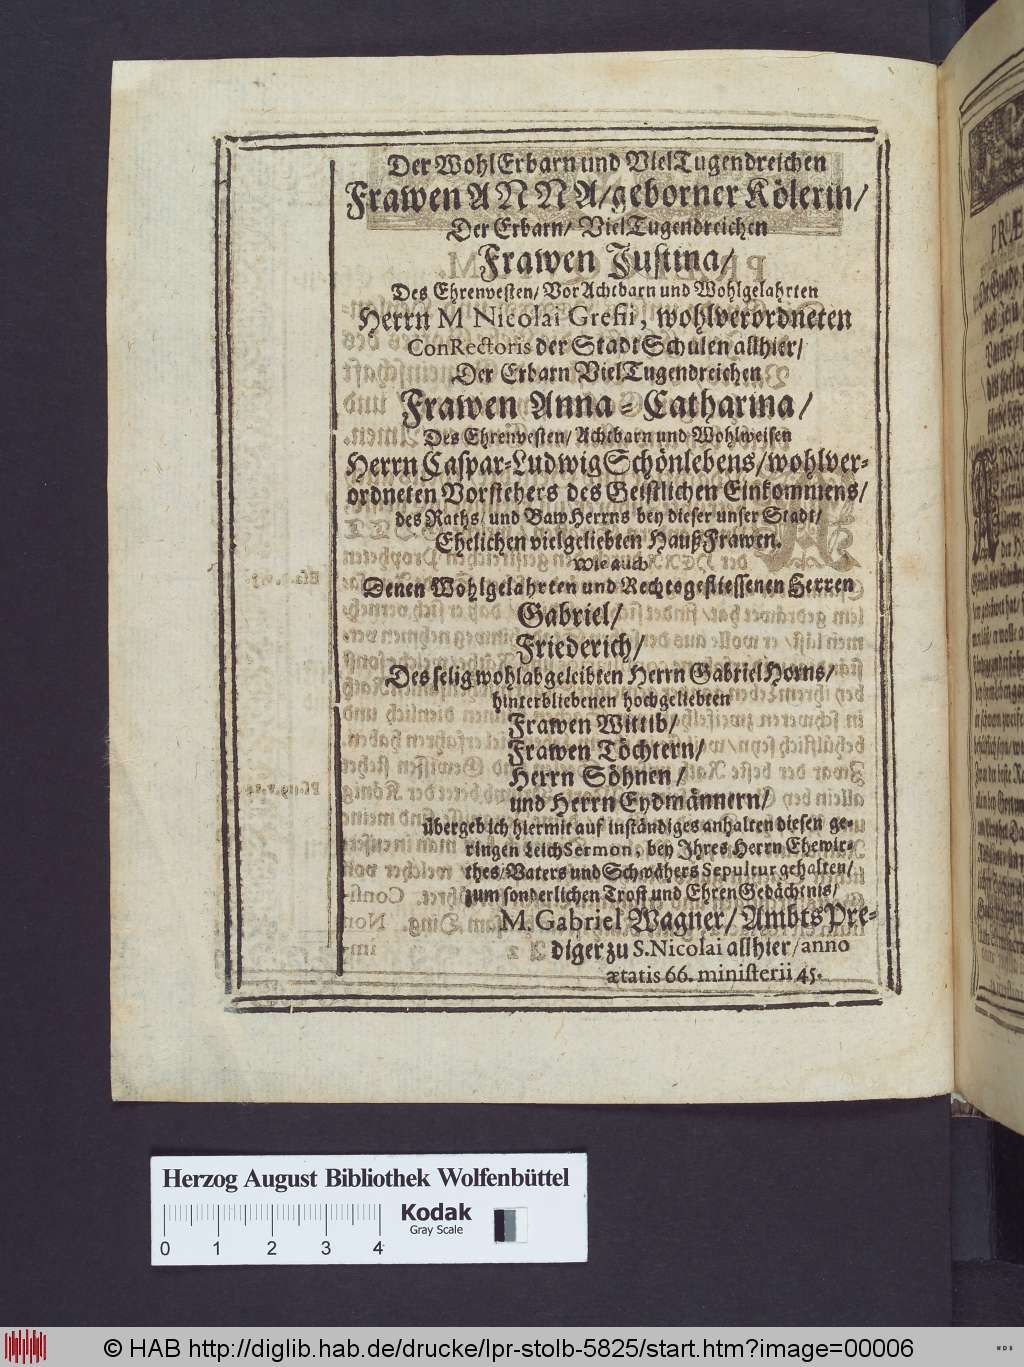 Der WohlErbarn und VielTugendreichen
Frawen ANNA/geborner Kölerin/
Der Erbarn/ VielTugendreichen
Frawen Justina/
Des Ehrenvesten/ VorAchtbarn und Wohlgelahrten
Herrn M Nicolai Grefii, wohlverordneten
ConRectoris der StadtSchulen allhier/
Der Erbarn VielTugendreichen
Frawen Anna-Catharina/
Des Ehrenvesten/ Achtbarn und Wohlweisen
Herrn Caspar-Ludwig Schönlebens/wohlver-
ordneten Vorstehers des Geistlichen Einkommens/
des Raths/ und BawHerrns bey dieser unser Stadt/
Ehelichen vielgeliebten HaußFrawen.
Wie auch
Denen Wohlgelahrten und Rechtsgefliessenen Herren
Gabriel/
Friederich/
Des selig wohlabgeleibten Herrn Gabriel Horns/
hinterbliebenen hochgeliebten
Frawen Wittib/
Frawen Töchtern/
Herrn Söhnen/
und Herrn Eydmännern/
übergeb ich hiermit auf inständiges anhalten diesen ge-
ringen LeichSermon, bey Ihres Herrn Ehewir-
thes/Vaters und Schwähers Sepultur gehalten/
zum sonderlichen Trost und EhrenGedächtnis/
M. Gabriel Wagner/ AmbtsPre-
diger zu S. Nicolai allhier/anno
ætatis 66. ministerii 45.
Herzog August Bibliothek Wolfenbüttel
Kodak
Gray Scale
0 1 2 3 4
© HAB http://diglib.hab.de/drucke/lpr-stolb-5825/start.htm?image=00006